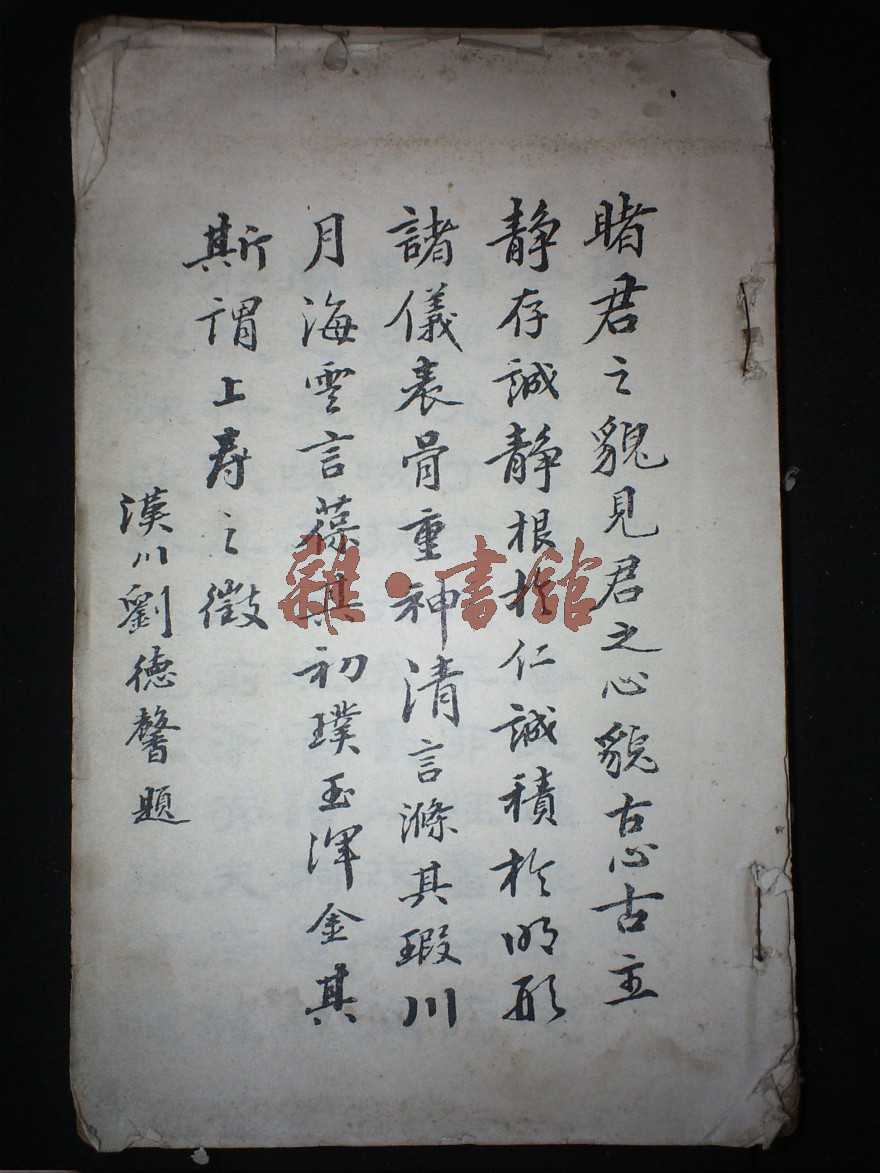 睹君之貌見君之心貌古心古主
静存誠静根於仁誠積於明形
諸儀表骨重神清言滌其瑕川
月海雲言葆其初璞玉渾金其
斯謂上壽之徵
漢川劉德馨題
雜·書館